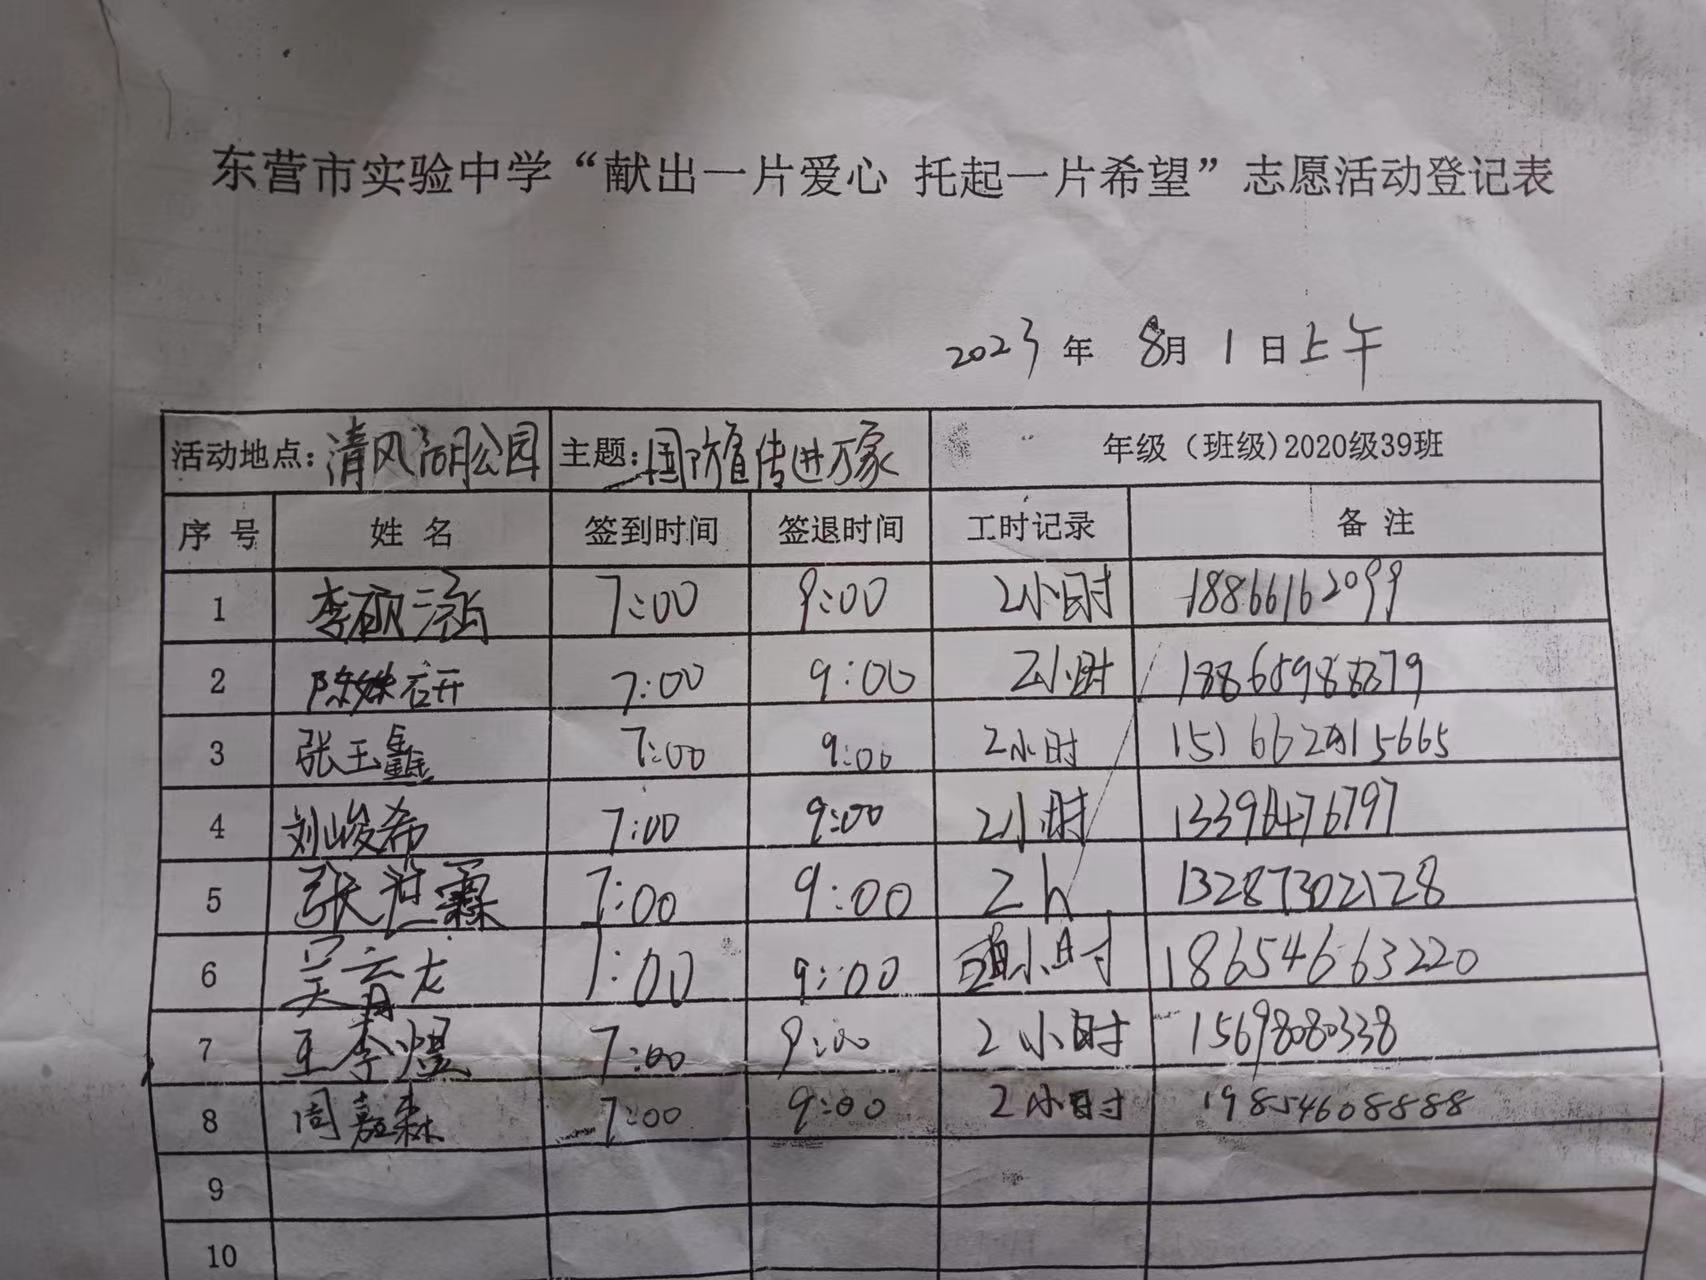 东营市实验中学“献出一片爱心 托起一片希望”志愿活动登记表
2023年 8月 1日上午
活动地点:清风湖公园 主题:国防宣传进万家 年级（班级)2020级39班
序 号 姓 名 签到时间 签退时间 工时记录 备 注
1 李硕涵 7:00 9:00 2小时 18866162099
2 陈姝研 7:00 9:00 2小时
3 张玉鑫 7:00 9:00 2小时
4 刘峻希 7:00 9:00 2小时 13396476797
5 张 霖 7:00 9:00 2h 13287302128
6 吴 龙 7:00 9:00 小时 18654663220
7 王李煜 7:00 9:00 2小时 15698080338
8 周嘉森 7:00 9:00 2小时 19854608888
9
10